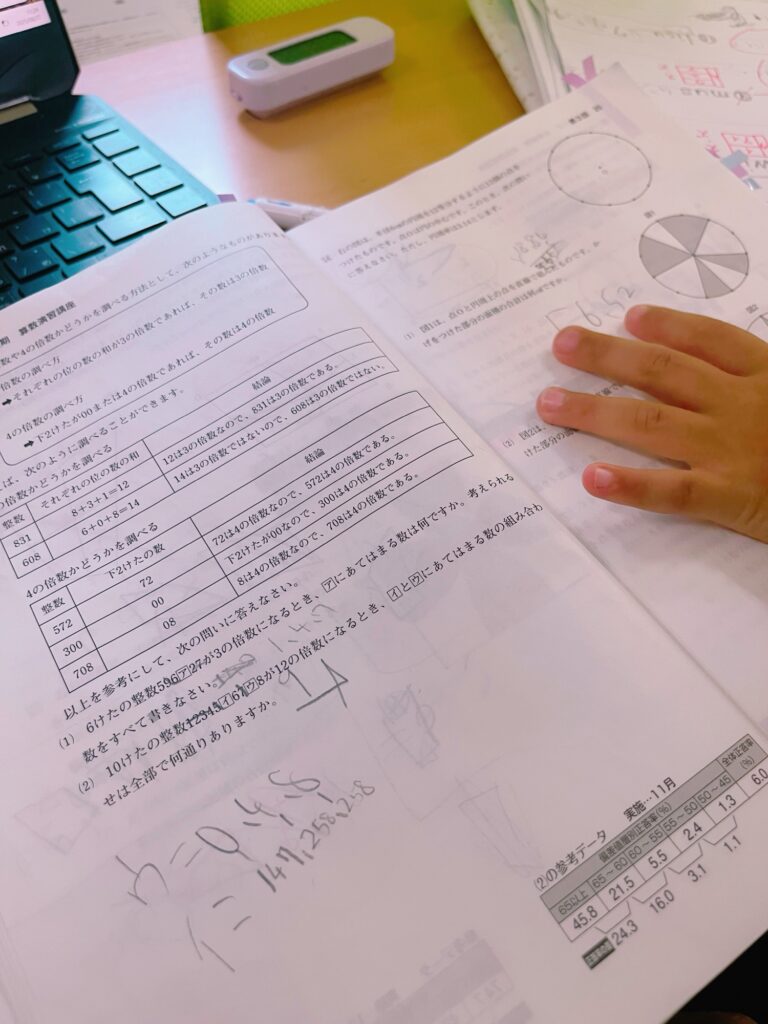 期 算数演習講座
数や4の倍数かどうかを調べる方法として，次のようなものがありま
倍数の調べ方
➡それぞれの位の数の和が3の倍数であれば，その数は3の倍数
4の倍数の調べ方
➡下2けたが00または4の倍数であれば，その数は4の倍数
ば，次のように調べることができます。
の倍数かどうかを調べる
整数 それぞれの位の数の和 結論
831 8+3+1=12 12は3の倍数なので，831は3の倍数である。
608 6+0+8=14 14は3の倍数ではないので，608は3の倍数ではない。
4の倍数かどうかを調べる
整数 下2けたの数 結論
572 72 72は4の倍数なので，572は4の倍数である。
300 00 下2けたが00なので，300は4の倍数である。
708 08 8は4の倍数なので，708は4の倍数である。
以上を参考にして，次の問いに答えなさい。
(1) 6けたの整数596ア27が3の倍数になるとき，アにあてはまる数は何ですか。考えられる
数をすべて書きなさい。
(2) 10けたの整数12345イ67ウ8が12の倍数になるとき，イとウにあてはまる数の組み合わ
せは全部で何通りありますか。
147,258,258
(2)の参考データ 実施…11月
偏差値層別正答率(%) 全体正答率(%)
65以上 65～60 60～55 55～50 50～45
45.8 21.5 5.5 2.4 1.3 6.0
24.3 16.0 3.1 1.1
右の図は，半径6cmの円周を12等分するように12個の点を
つけたものです。点Oは円の中心です。このとき，次の問い
に答えなさい。ただし，円周率は3.14とします。
図1
(1) 図1は，点Oと円周上の点を直線で結んだものです。か
げをつけた部分の面積の合計は何cm²ですか。
56.52
図2
(2) 図2は，
けた部分の面